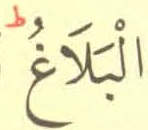 الْبَلَاغُ ۭؕ